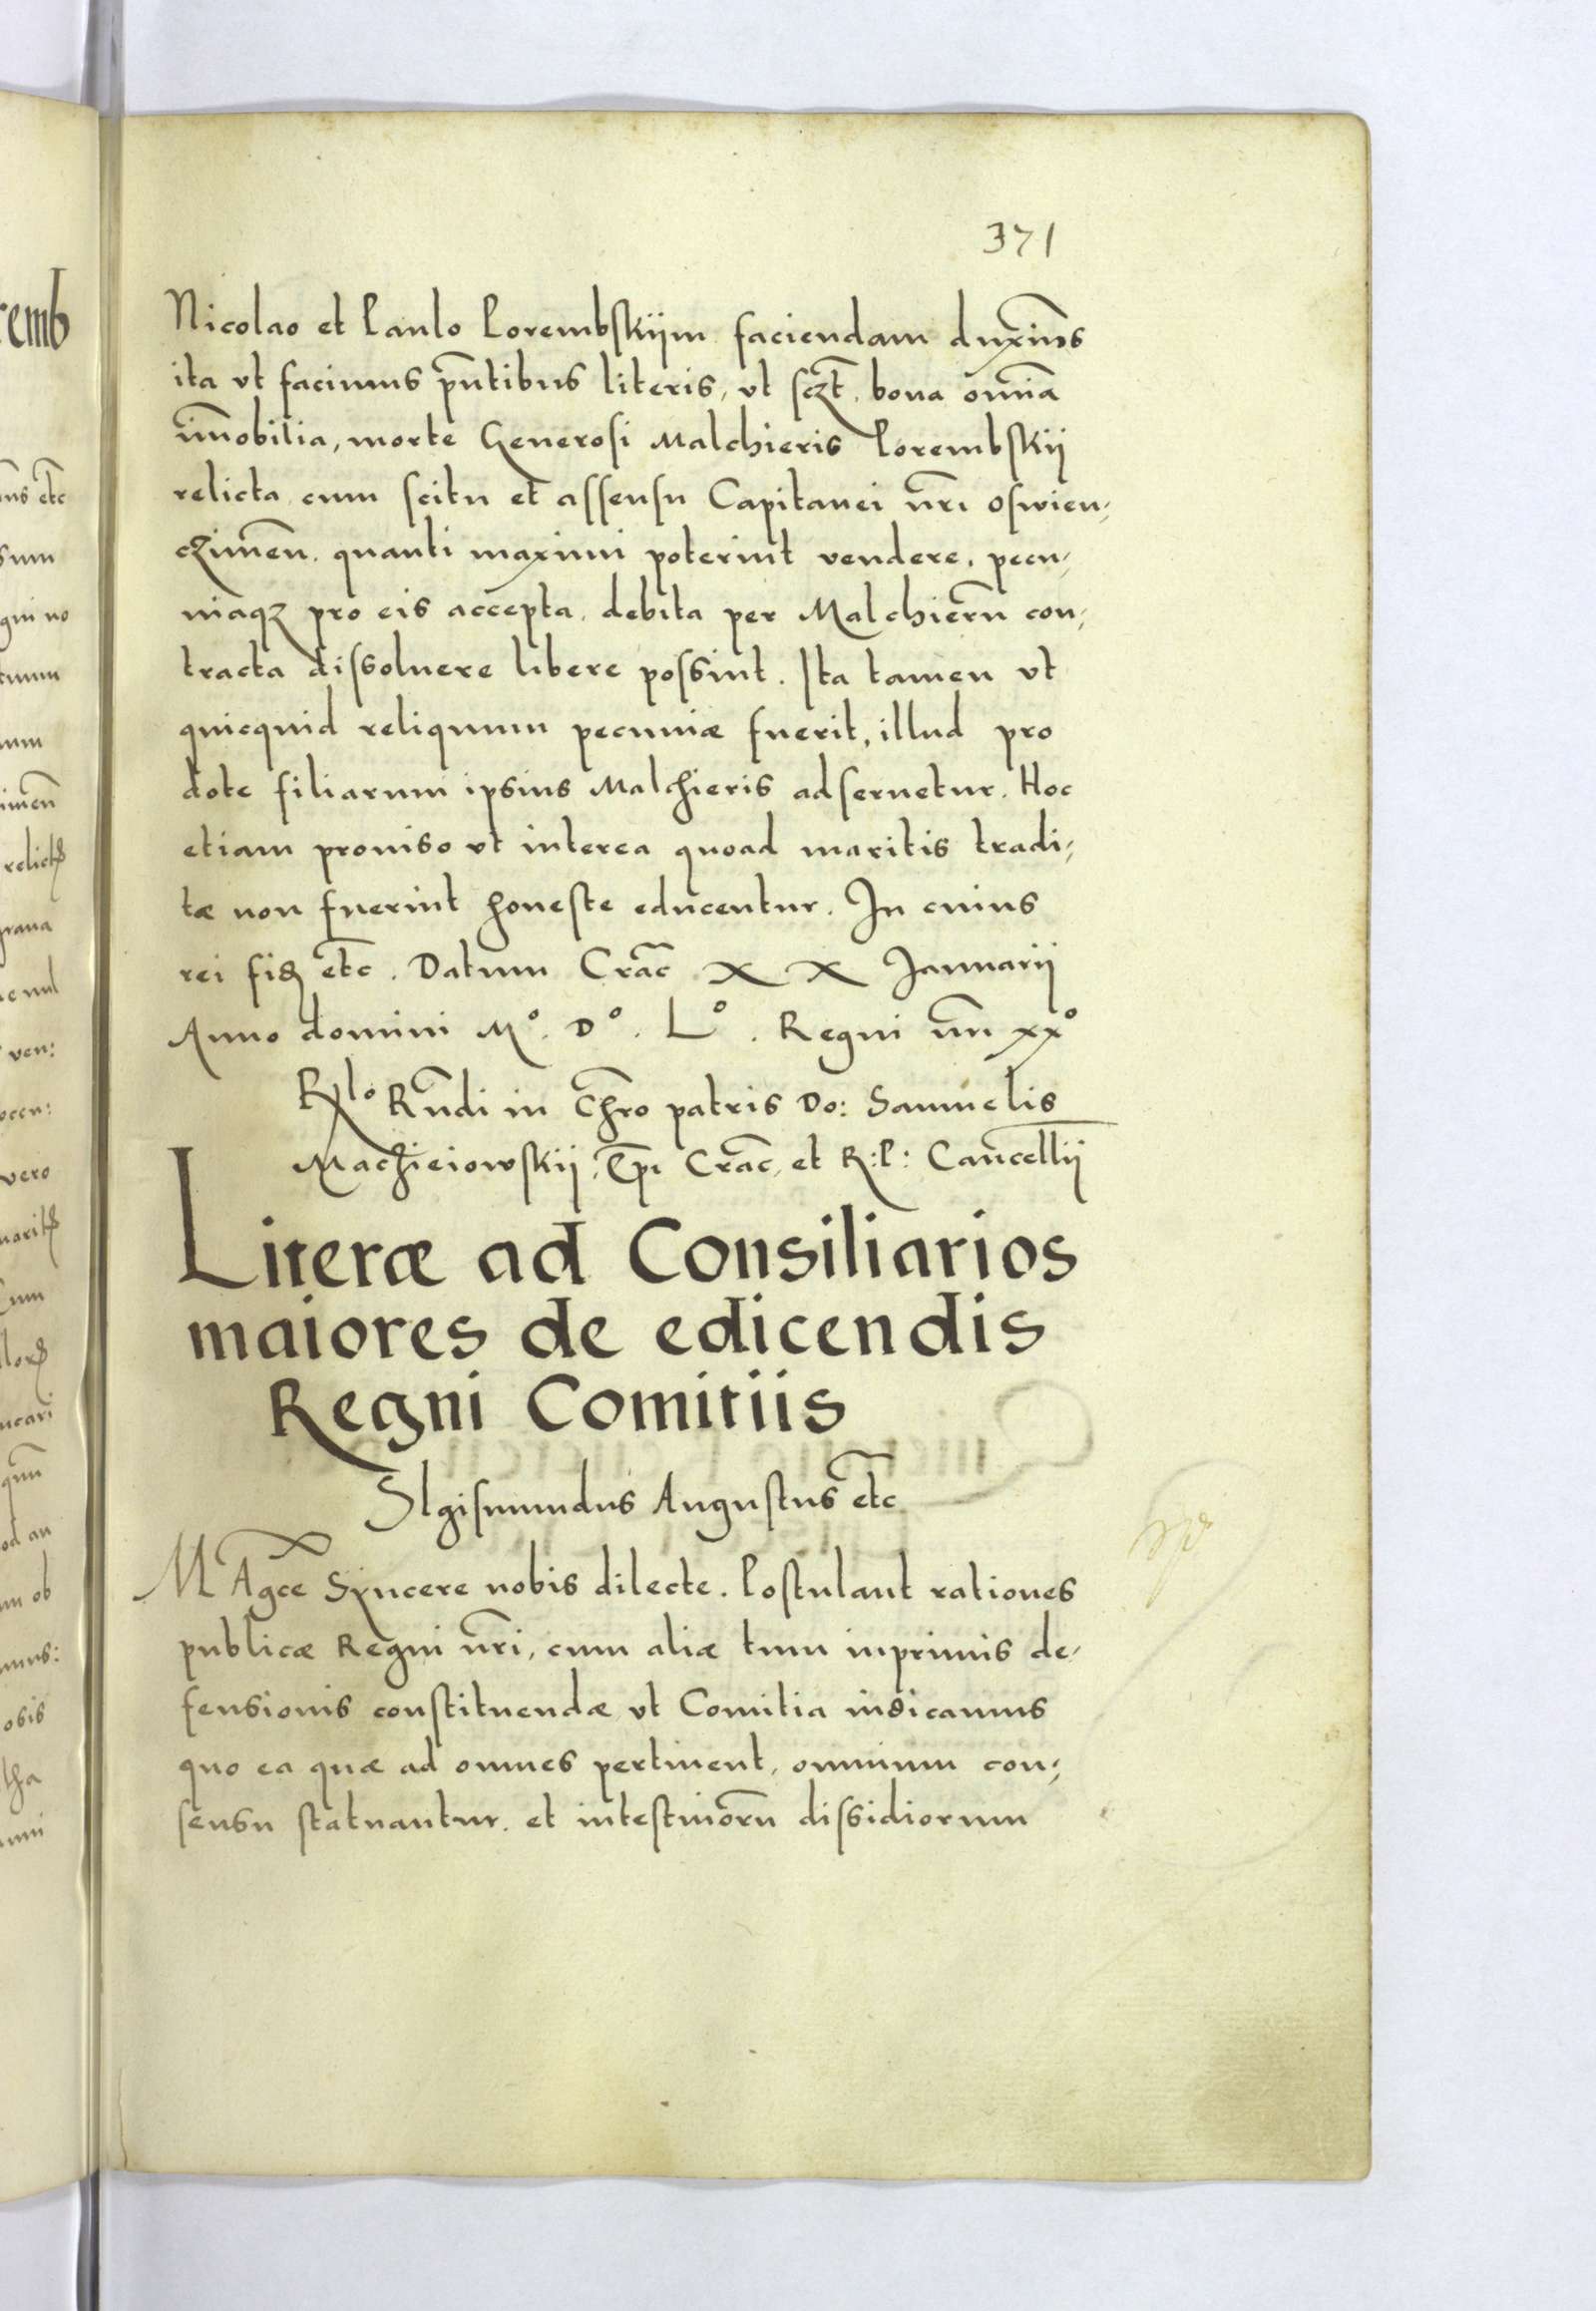 371
Nicolao et Paulo Porembskijm faciendam duxim̃s
ita vt facimus p̃ntibus literis, vt sczt̃, bona omnĩa
im̃obilia, morte Generosi Malchieris Porembskij
relicta cum scitu et assensu Capitanei nr̃i oswien,
czimen̄. quanti maximi poterint vendere, pecu,
niaqz pro eis accepta, debita per Malchierũ con,
tracta dissoluere libere possint. Ita tamen vt
quicquid reliquum pecuniæ fuerit, illud pro
dote filiarum ipsius Malchieris adseruetur. Hoc
etiam prouiso vt interea quoad maritis tradi,
tæ non fuerint honeste educentur. In cuius
rei fiꝫ etc̃. Datum Crac̃ XX Januarij
Anno domini M°. D°. L°. Regni nr̃i xx°
Rlo Rñdi in Chr̃o patris Do: Samuelis
Machieiowskij, Ep̃i Crac̃, et R:P: Cancellij
Literæ ad Consiliarios
maiores de edicendis
Regni Comitiis
SIgismundus Augustus etc̃
MAgc̃e Syncere nobis dilecte. Postulant rationes
publicæ Regni nr̃i, cum aliæ tum inprimis de,
fensionis constituendæ vt Comitia indicamus
quo ea quæ ad omnes pertinent, omnium con,
sensu statuantur, et intestinorũ dissidiorum